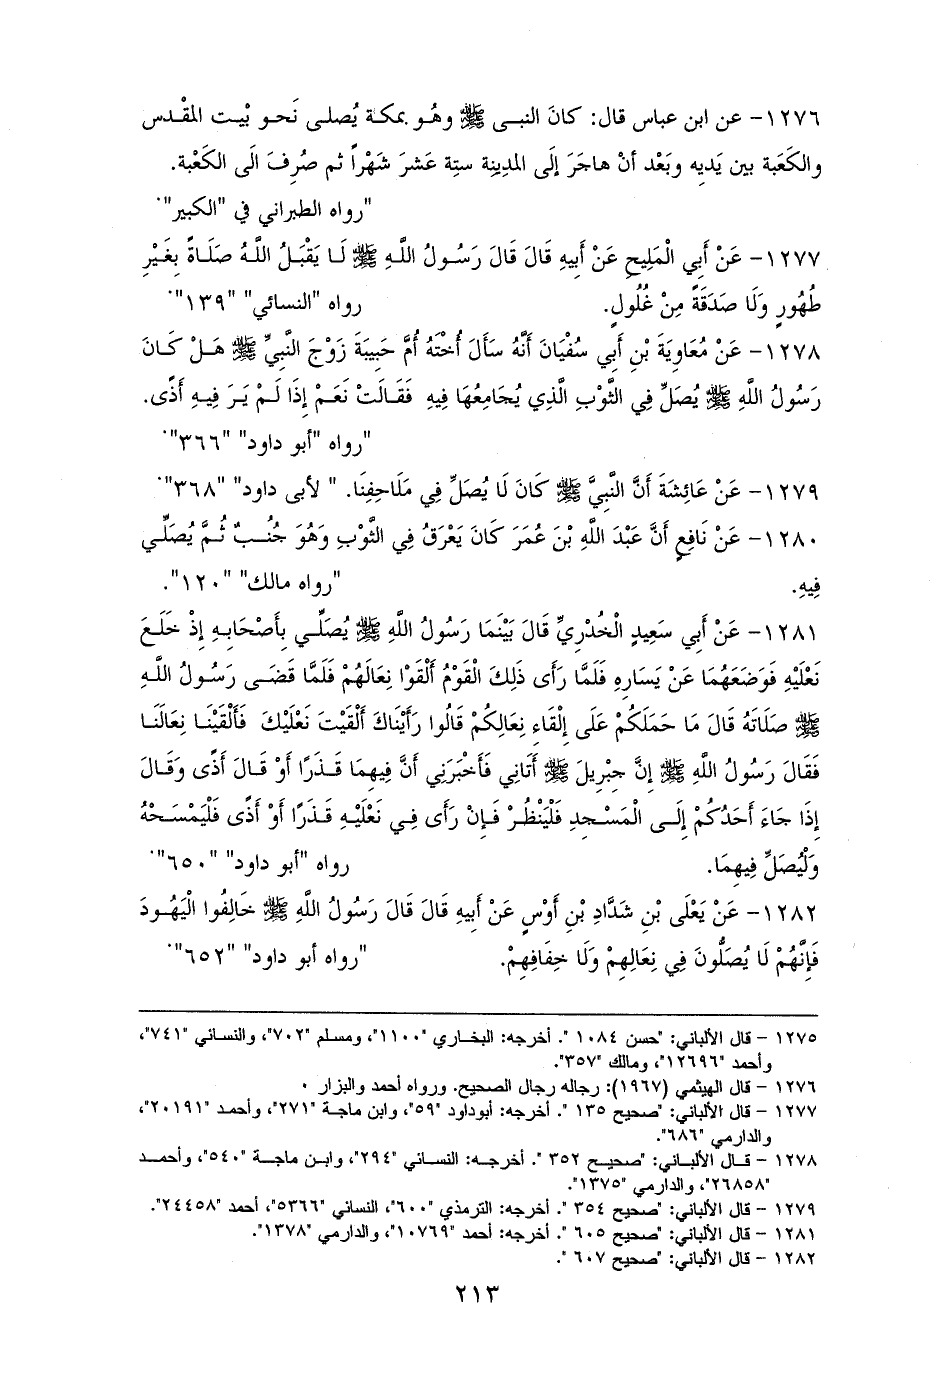 ١٢٧٦- عن ابن عباس قال: كانَ النبى ﷺ وهُو بمكة يُصلى نَحو بْيت المقْدس
والكَعَبة بين يَديه وبَعْد أنْ هاجَرَ إلَى المدِينة ستة عَشَرَ شَهْراً ثم صُرِفَ الَى الكَعْبة.
"رواه الطبراني في "الكبير".
١٢٧٧- عَنْ أَبِي الْمَلِيحِ عَنْ أَبِيهِ قَالَ قَالَ رَسُولُ اللَّهِ ﷺ لَا يَقْبَلُ اللَّهُ صَلَاةً بِغَيْرِ
طُهُورٍ وَلَا صَدَقَةً مِنْ غُلُولٍ. رواه "النسائي" "١٣٩".
١٢٧٨- عَنْ مُعَاوِيَةَ بْنِ أَبِي سُفْيَانَ أَنَّهُ سَأَلَ أُخْتَهُ أُمَّ حَبِيبَةَ زَوْجَ النَّبِيِّ ﷺ هَلْ كَانَ
رَسُولُ اللَّهِ ﷺ يُصَلِّ فِي الثَّوْبِ الَّذِي يُجَامِعُهَا فِيهِ فَقَالَتْ نَعَمْ إِذَا لَمْ يَرَ فِيهِ أَذًى.
"رواه "أبو داود" "٣٦٦".
١٢٧٩- عَنْ عَائِشَةَ أَنَّ النَّبِيَّ ﷺ كَانَ لَا يُصَلِّ فِي مَلَاحِفِنَا. " لأبى داود" "٣٦٨".
١٢٨٠- عَنْ نَافِعٍ أَنَّ عَبْدَ اللَّهِ بْنَ عُمَرَ كَانَ يَعْرَقُ فِي الثَّوْبِ وَهُوَ جُنُبٌ ثُمَّ يُصَلِّي
فِيهِ. "رواه مالك" "١٢٠".
١٢٨١- عَنْ أَبِي سَعِيدٍ الْخُدْرِيِّ قَالَ بَيْنَمَا رَسُولُ اللَّهِ ﷺ يُصَلِّي بِأَصْحَابِهِ إِذْ خَلَعَ
نَعْلَيْهِ فَوَضَعَهُمَا عَنْ يَسَارِهِ فَلَمَّا رَأَى ذَلِكَ الْقَوْمُ أَلْقَوْا نِعَالَهُمْ فَلَمَّا قَضَى رَسُولُ اللَّهِ
ﷺ صَلَاتَهُ قَالَ مَا حَمَلَكُمْ عَلَى إِلْقَاءِ نِعَالِكُمْ قَالُوا رَأَيْنَاكَ أَلْقَيْتَ نَعْلَيْكَ فَأَلْقَيْنَا نِعَالَنَا
فَقَالَ رَسُولُ اللَّهِ ﷺ إِنَّ جِبْرِيلَ ﷺ أَتَانِي فَأَخْبَرَنِي أَنَّ فِيهِمَا قَذَرًا أَوْ قَالَ أَذًى وَقَالَ
إِذَا جَاءَ أَحَدُكُمْ إِلَى الْمَسْجِدِ فَلْيَنْظُرْ فَإِنْ رَأَى فِي نَعْلَيْهِ قَذَرًا أَوْ أَذًى فَلْيَمْسَحْهُ
وَلْيُصَلِّ فِيهِمَا. رواه "أبو داود" "٦٥٠".
١٢٨٢- عَنْ يَعْلَى بْنِ شَدَّادِ بْنِ أَوْسٍ عَنْ أَبِيهِ قَالَ قَالَ رَسُولُ اللَّهِ ﷺ خَالِفُوا الْيَهُودَ
فَإِنَّهُمْ لَا يُصَلُّونَ فِي نِعَالِهِمْ وَلَا خِفَافِهِمْ. "رواه أبو داود" "٦٥٢".
١٢٧٥ - قال الألباني: "حسن ١٠٨٤ ". أخرجه: البخاري "١١٠٠"، ومسلم "٧٠٢"، والنسائي "٧٤١"،
وأحمد "١٢٦٩٦"، ومالك "٣٥٧".
١٢٧٦ - قال الهيثمي (١٩٦٧): رجاله رجال الصحيح. ورواه أحمد والبزار .
١٢٧٧ - قال الألباني: "صحيح ١٣٥ ". أخرجه: أبوداود "٥٩"، وابن ماجة "٢٧١"، وأحمد "٢٠١٩١"،
والدارمي "٦٨٦".
١٢٧٨ - قال الألباني: "صحيح ٣٥٢ ". أخرجه: النسائي "٢٩٤"، وابن ماجة "٥٤٠"، وأحمد
"٢٦٨٥٨"، والدارمي "١٣٧٥".
١٢٧٩ - قال الألباني: "صحيح ٣٥٤ ". أخرجه: الترمذي "٦٠٠"، النسائي "٥٣٦٦"، أحمد "٢٤٤٥٨".
١٢٨١ - قال الألباني: "صحيح ٦٠٥ ". أخرجه: أحمد "١٠٧٦٩"، والدارمي "١٣٧٨".
١٢٨٢ - قال الألباني: "صحيح ٦٠٧ ".
٢١٣